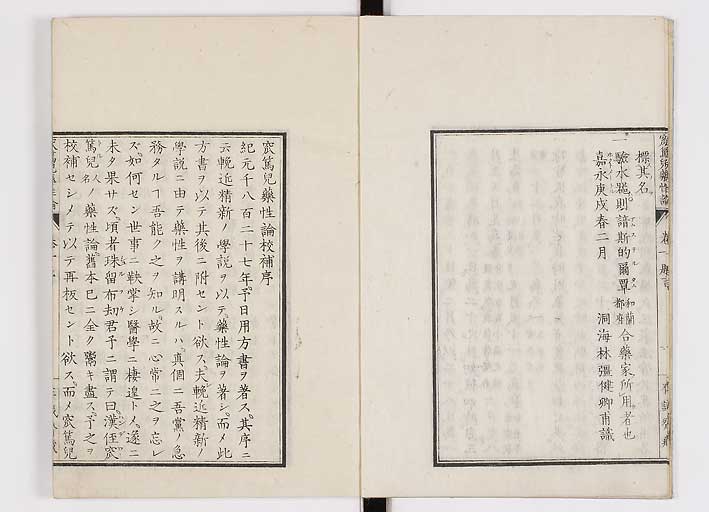 標其名
一驗水砣則諳斯的爾覃和蘭都府合藥家所用者也
嘉永庚戌春二月 洞海林彊健卿甫識
窊篤兒藥性論 卷一 題言
窊篤兒藥性論校補序
紀元千八百二十七年予日用方書ヲ著ス其序ニ
云輓近精新ノ學説ヲ以テ藥性論ヲ著シ而メ此
方書ヲ以テ其後ニ附セント欲ス夫輓近精新ノ
學説ニ由テ藥性ヲ講明スルハ真個ニ吾黨ノ急
務タルヿ吾能ク之ヲ知ル故ニ心常ニ之ヲ忘レ
ズ如何セン世事ニ鞅掌シ醫學ニ棲遑トメ遂ニ
未タ果サズ頃者珠留布劫君予ニ謂テ曰漢侄窊
篤兒人名ノ藥性論舊本已ニ全ク鬻キ盡ス予之ヲ
校補セシメテ以テ再板セント欲ス而メ窊篤兒